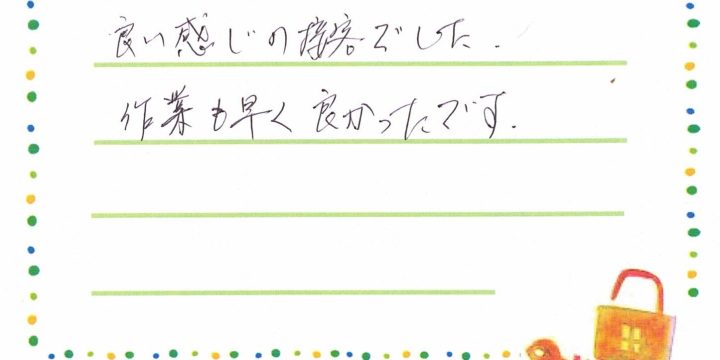 良い感じの接客でした.
作業も早く良かったです.